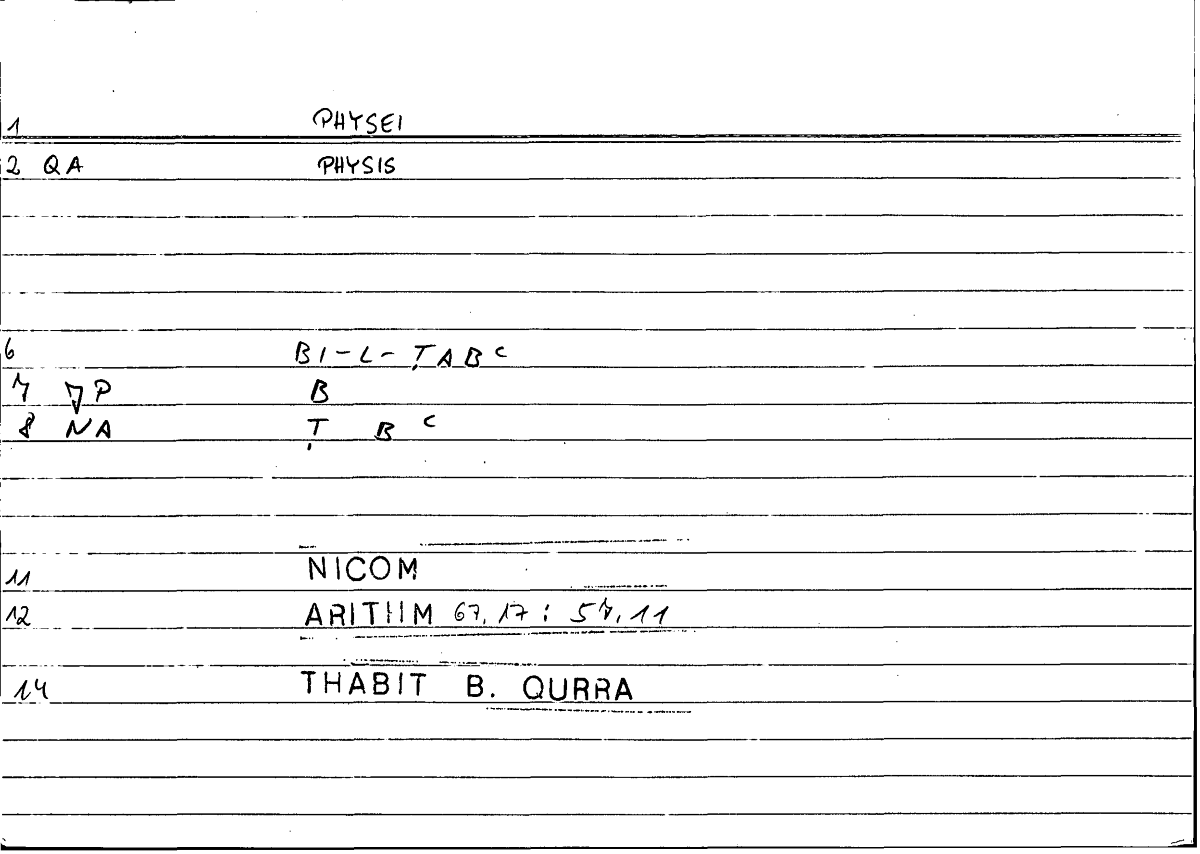 1 PHYSEI
2 QA PHYSIS
6 BI-L-ṬABC
7 P B
8 NA Ṭ B C
11 NICOM
12 ARITHM 67, 17 : 57, 11
14 THABIT B. QURRA